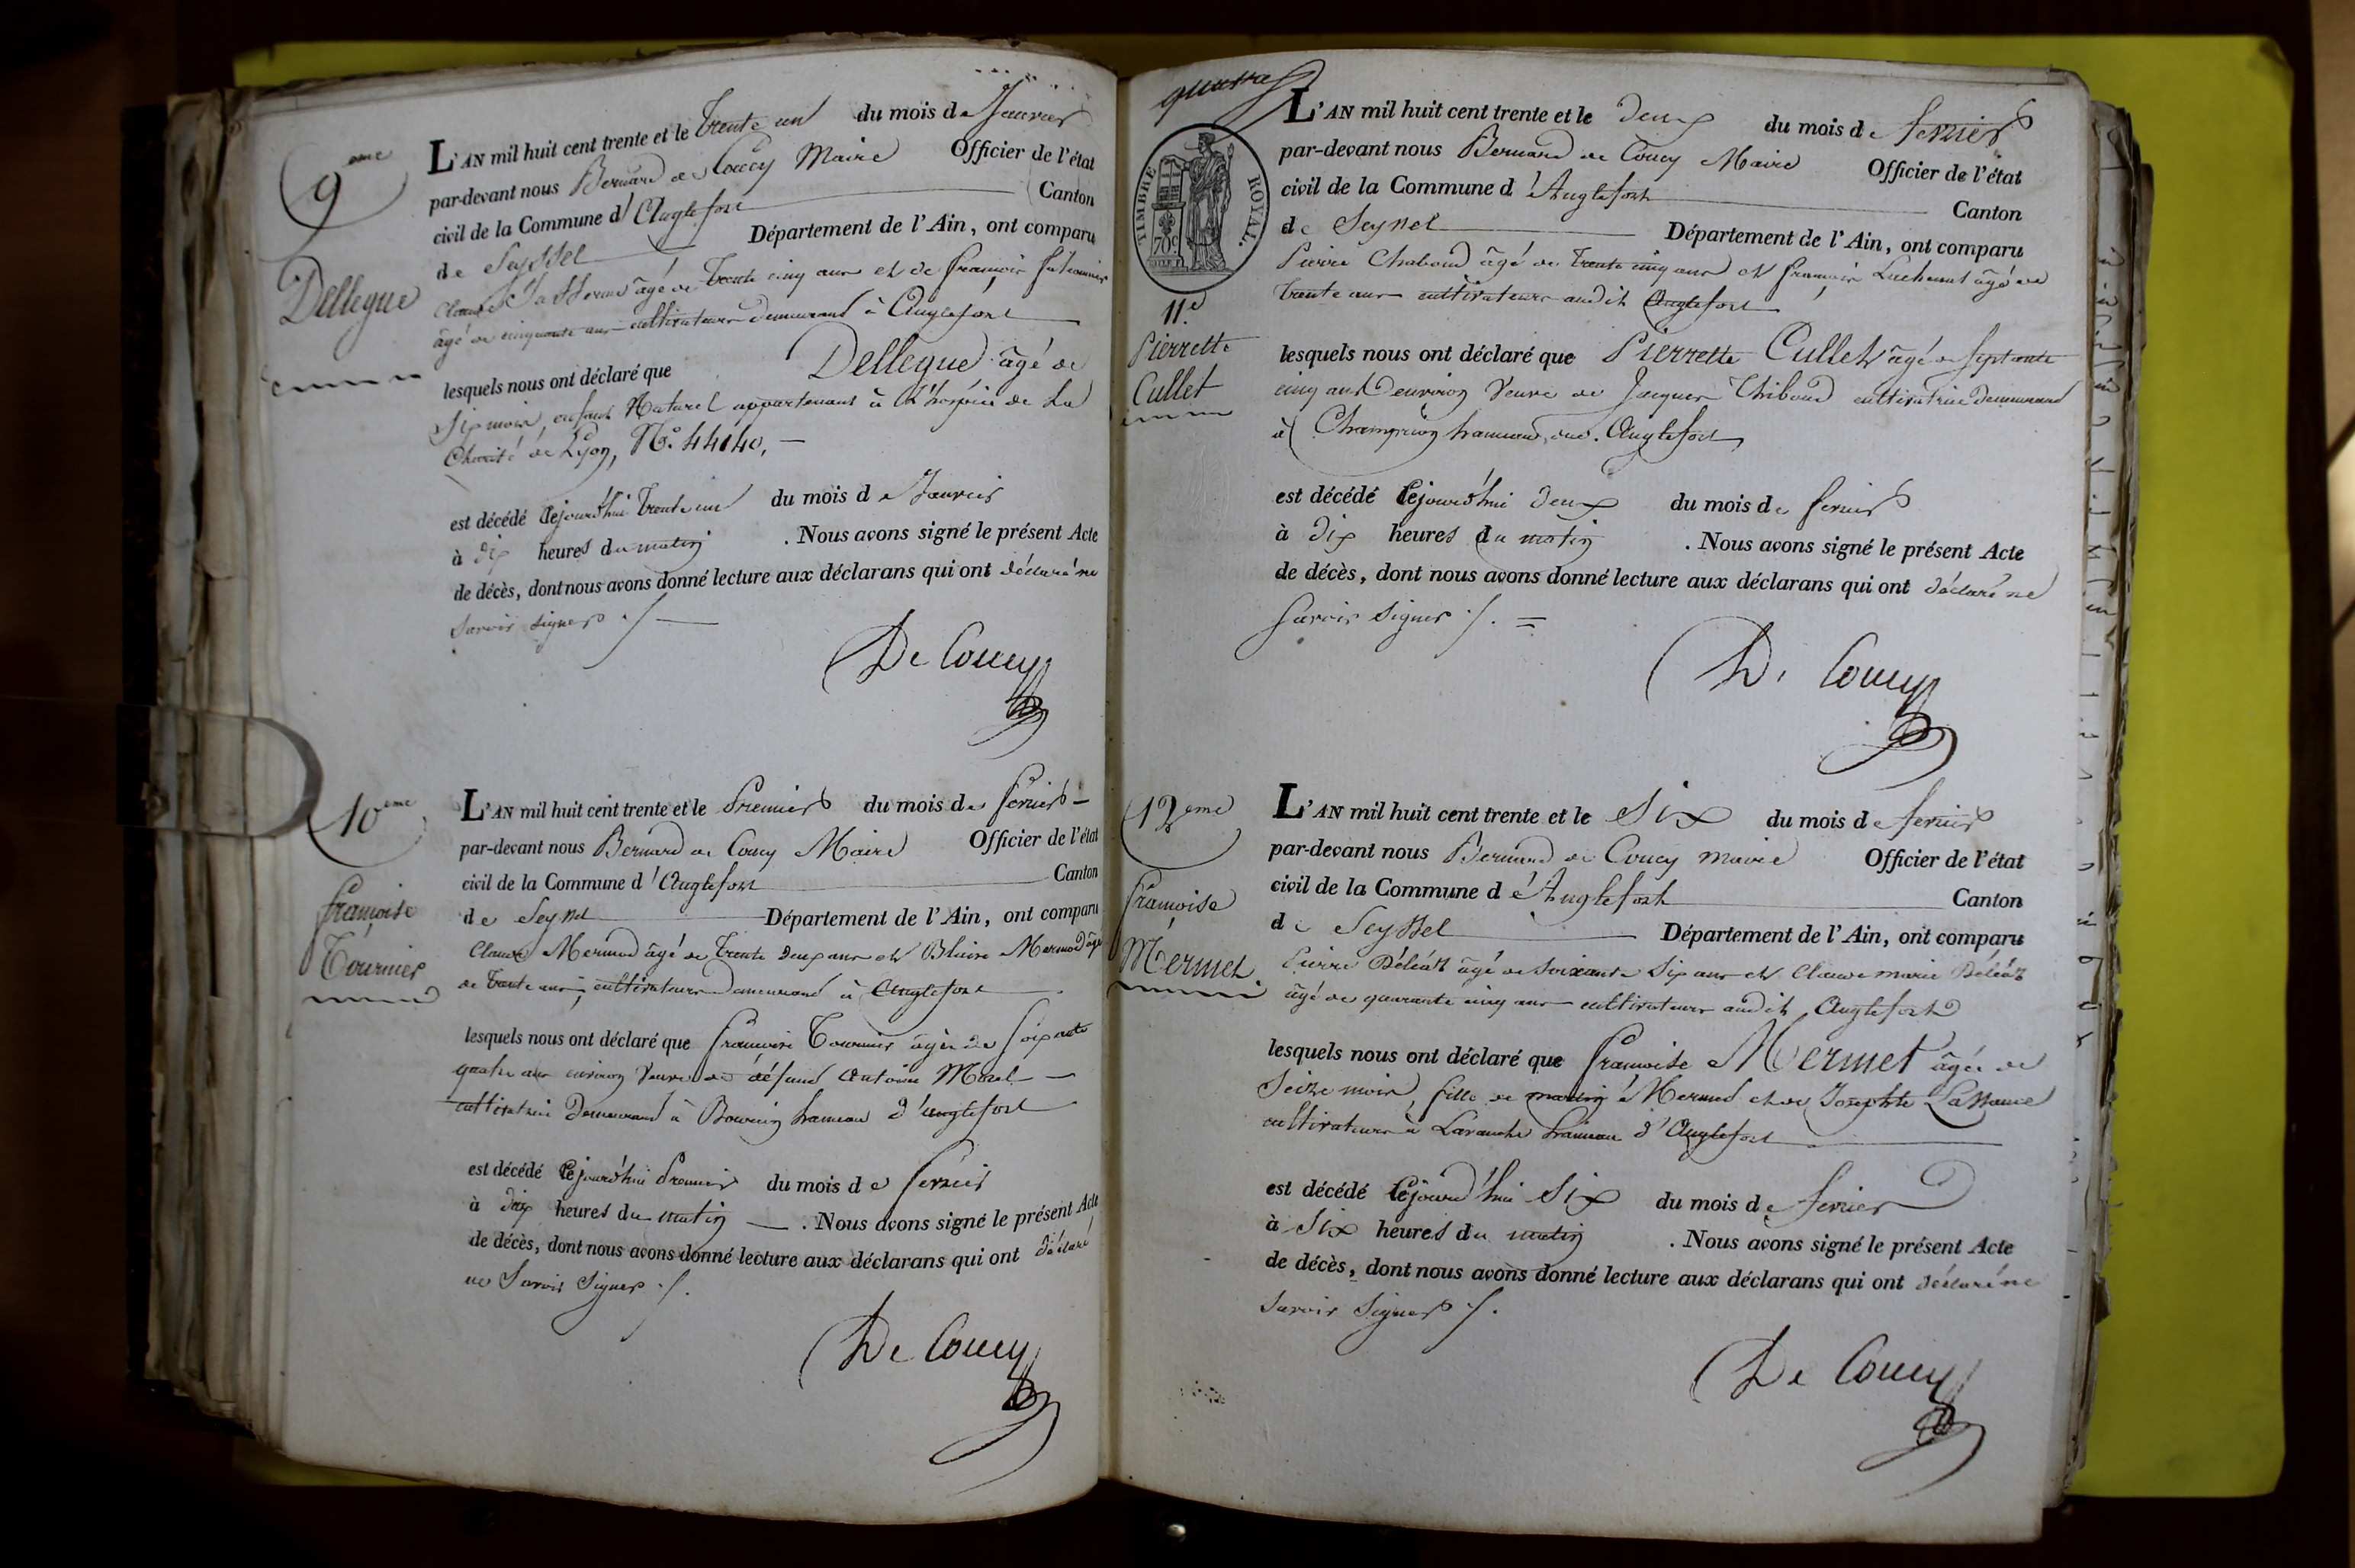 9eme
Dellegue
L'AN mil huit cent trente et le trente un du mois de Janvier
par-devant nous Bernard de Coucy Maire Officier de l'état
civil de la Commune d'Anglefort Canton
de Seyssel Département de l'Ain, ont comparu
Claude âgé de trente cinq ans et de françois
âgé de cinquante ans cultivateurs demeurant à Anglefort
lesquels nous ont déclaré que Dellegue âgé de
Six mois, enfant Naturel appartenant à l'hospice de La
Charité de Lyon, N°. 44640.
est décédé Cejourd'hui trente un du mois de Janvier
à dix heures du matin . Nous avons signé le présent Acte
de décès, dont nous avons donné lecture aux déclarans qui ont déclaré ne
Savoir signer ./.
De Coucy
10eme
françoise
Tournier
L'AN mil huit cent trente et le Premier du mois de fevrier
par-devant nous Bernard de Coucy Maire Officier de l'état
civil de la Commune d'Anglefort Canton
de Seyssel Département de l'Ain, ont comparu
Claude Mermod âgé de trente deux ans et Blaise Mermod âgé
de trente ans, cultivateurs demeurand à Anglefort
lesquels nous ont déclaré que françoise Tournier âgée de soixante
quatre ans environ Veuve de défund Antoine Morel
cultivatrice demeurand à hameau d'anglefort
est décédé Cejourd'hui Premier du mois de fevrier
à dix heures du matin . Nous avons signé le présent Acte
de décès, dont nous avons donné lecture aux déclarans qui ont déclaré
ne Savoir Signer ./.
De Coucy
quatre
TIMBRE ROYAL.
70c
11.e
Pierrette
Cullet
L'AN mil huit cent trente et le deux du mois de fevrier
par-devant nous Bernard de Coucy Maire Officier de l'état
civil de la Commune d'Anglefort Canton
de Seyssel Département de l'Ain, ont comparu
Pierre Chaboud âgé de trente cinq ans et françois Luchemet âgé de
trente ans cultivateurs audit Anglefort
lesquels nous ont déclaré que Pierrette Cullet âgé de septante
cinq ans d'environ Veuve de Jacques Thiboud cultivatrice demeurand
à hameau, de. Anglefort
est décédé Cejourd'hui deux du mois de fevrier
à dix heures du matin . Nous avons signé le présent Acte
de décès, dont nous avons donné lecture aux déclarans qui ont déclaré ne
Savoir Signer ./. =
De Coucy
12eme
françoise
Mermet
L'AN mil huit cent trente et le Six du mois de fevrier
par-devant nous Bernard de Coucy Maire Officier de l'état
civil de la Commune d'Anglefort Canton
de Seyssel Département de l'Ain, ont comparu
Pierre Déléaz âgé de soixante Six ans et Claude marie Déléaz
âgé de quarante cinq ans cultivateurs audit Anglefort
lesquels nous ont déclaré que françoise Mermet âgée de
Seize mois, fille de martin Mermet et de Josephte
cultivateurs à Lavanche hameau d'Anglefort
est décédé Cejourd'hui Six du mois de fevrier
à Six heures du matin . Nous avons signé le présent Acte
de décès, dont nous avons donné lecture aux déclarans qui ont déclaré ne
Savoir Signer ./.
De Coucy